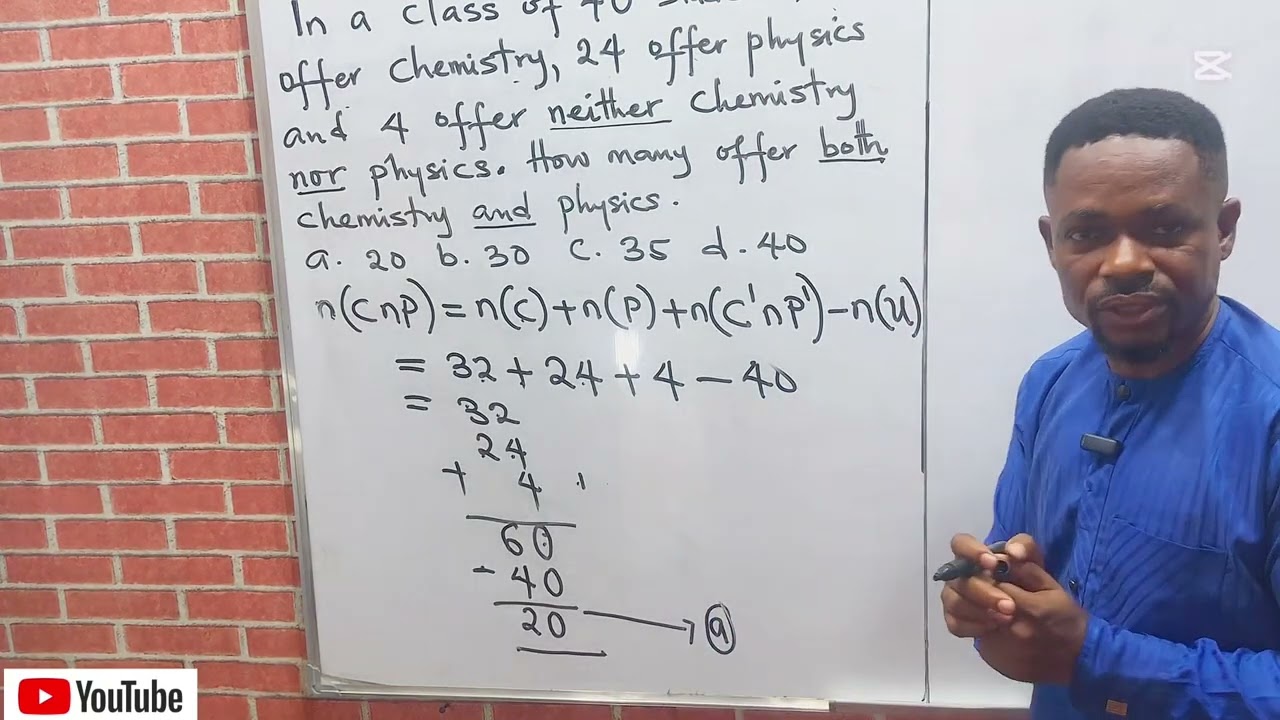 In a class of 40
offer chemistry, 24 offer physics
and 4 offer neither chemistry
nor physics. How many offer both
chemistry and physics.
a. 20 b. 30 c. 35 d. 40
n(CnP) = n(C) + n(P) + n(C'nP') - n(U)
= 32 + 24 + 4 - 40
= 32
24
+ 4
60
- 40
20 → a
YouTube